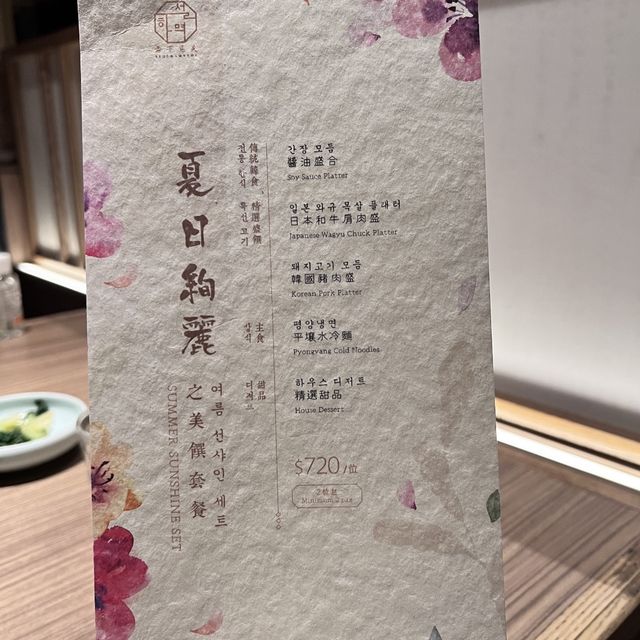 설하멱
夏日絢麗
之美饌套餐
여름 선샤인 세트
SUMMER SUNSHINE SET
傳統韓食、精選盛饌
전통 한식 특선 고기
간장 모듬
醬油盛合
Soy Sauce Platter
일본 와규 목살 플래터
日本和牛肩肉盛
Japanese Wagyu Chuck Platter
돼지고기 모듬
韓國豬肉盛
Korean Pork Platter
主食
평양냉면
平壤水冷麵
Pyongyang Cold Noodles
甜品
디저트
하우스 디저트
精選甜品
House Dessert
$720/位
2位起
Minimum 2 pax